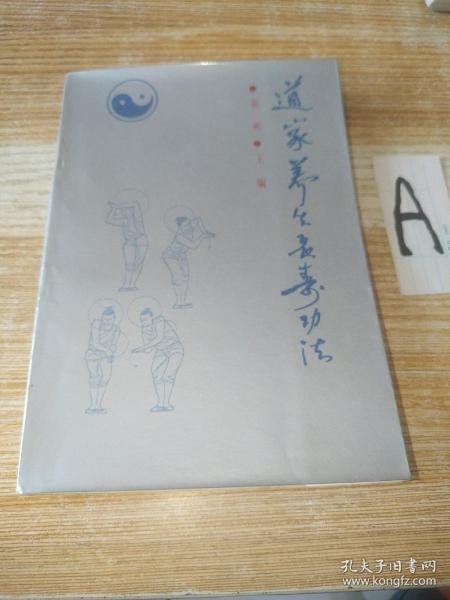 道家养生长寿功法
主编
A
孔夫子旧书网
www.kongfz.com